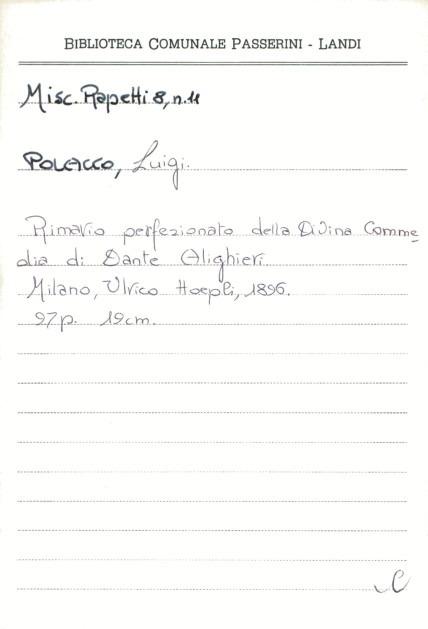 BIBLIOTECA COMUNALE PASSERINI - LANDI
Misc. Rapetti 8, n.11
POLACCO, Luigi.
Rimario perfezionato della Divina Comme
dia di Dante Alighieri.
Milano, Ulrico Hoepli, 1896.
97p. 19cm.